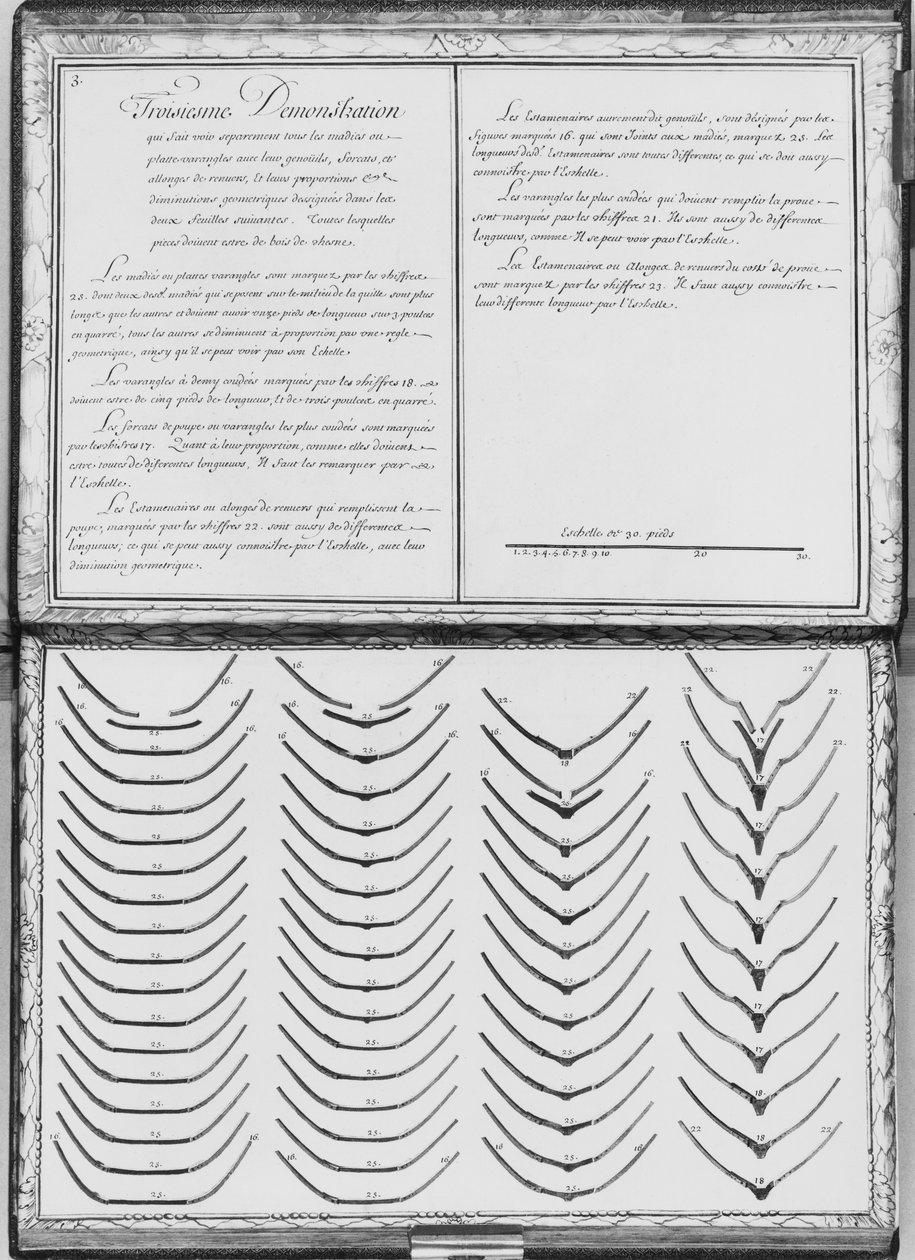 3.
Troisiesme Demonstration
qui fait voir separement tous les madies ou
platte varangles avec leur genoüils, forcats, et
allonges de renuers, Et leurs proportions &
diminutions geometriques dessignées dans les
deux feuilles suiuantes. Toutes lesquelles
pieces doiuent estre de bois de chesne.
Les madiés ou plattes varangles sont marquez par les chiffres
25. dont deux desd. madiés qui se posent sur le milieu de la quille sont plus
longes que les autres et doiuent auoir vnze pieds de longueur sur 3. pouces
en quarré, tous les autres se diminuent à proportion par vne regle
geometrique, ainsy qu'il se peut voir par son Echelle
Les varangles à demy coudées marquées par les chiffres 18.
doiuent estre de cinq pieds de longueur, Et de trois pouces en quarré.
Les forcats de poupe ou varangles les plus coudées sont marquées
par les chifres 17. Quant à leur proportion, comme elles doiuent
estre toutes de diferentes longueurs, Il faut les remarquer par
l'Eschelle.
Les Estamenaires ou alonges de renuers qui remplissent la
poupe, marquées par les chiffres 22. sont aussy de differentes
longueurs; ce qui se peut aussy connoistre par l'Eschelle, avec leur
diminution geometrique.
Les Estamenaires autrement dit genoüils, sont désignés par les
figures marquées 16. qui sont Joints aux madiés, marquez 25. Les
longueurs desd. Estamenaires sont toutes differentes, ce qui se doit aussy
connoistre par l'Eschelle.
Les varangles les plus coudées qui doiuent remplir la proue
sont marquées par les chiffres 21. Ils sont aussy de differentes
longueurs, comme Il se peut voir par l'Eschelle.
Les Estamenaires ou Alonges de renuers du costé de proüe
sont marquez par les chiffres 23. Il faut aussy connoistre
leur differente longueur par l'Eschelle.
Eschelle de 30. pieds
1. 2. 3. 4. 5. 6. 7. 8. 9. 10. 20 30.
16. 16. 16. 16. 22. 22.
16. 16. 25. 16. 25. 16. 22. 22. 22. 22.
25. 25. 18 17
25. 25. 25. 17
25. 25. 25. 17
25. 25. 25. 17
25. 25. 25. 17
25. 25. 25. 17
25. 25. 25. 17
25. 25. 25. 17
25. 25. 25. 18.
16. 25. 16. 25. 25. 22 18 22.
25. 16. 25. 16. 16 25. 16 18